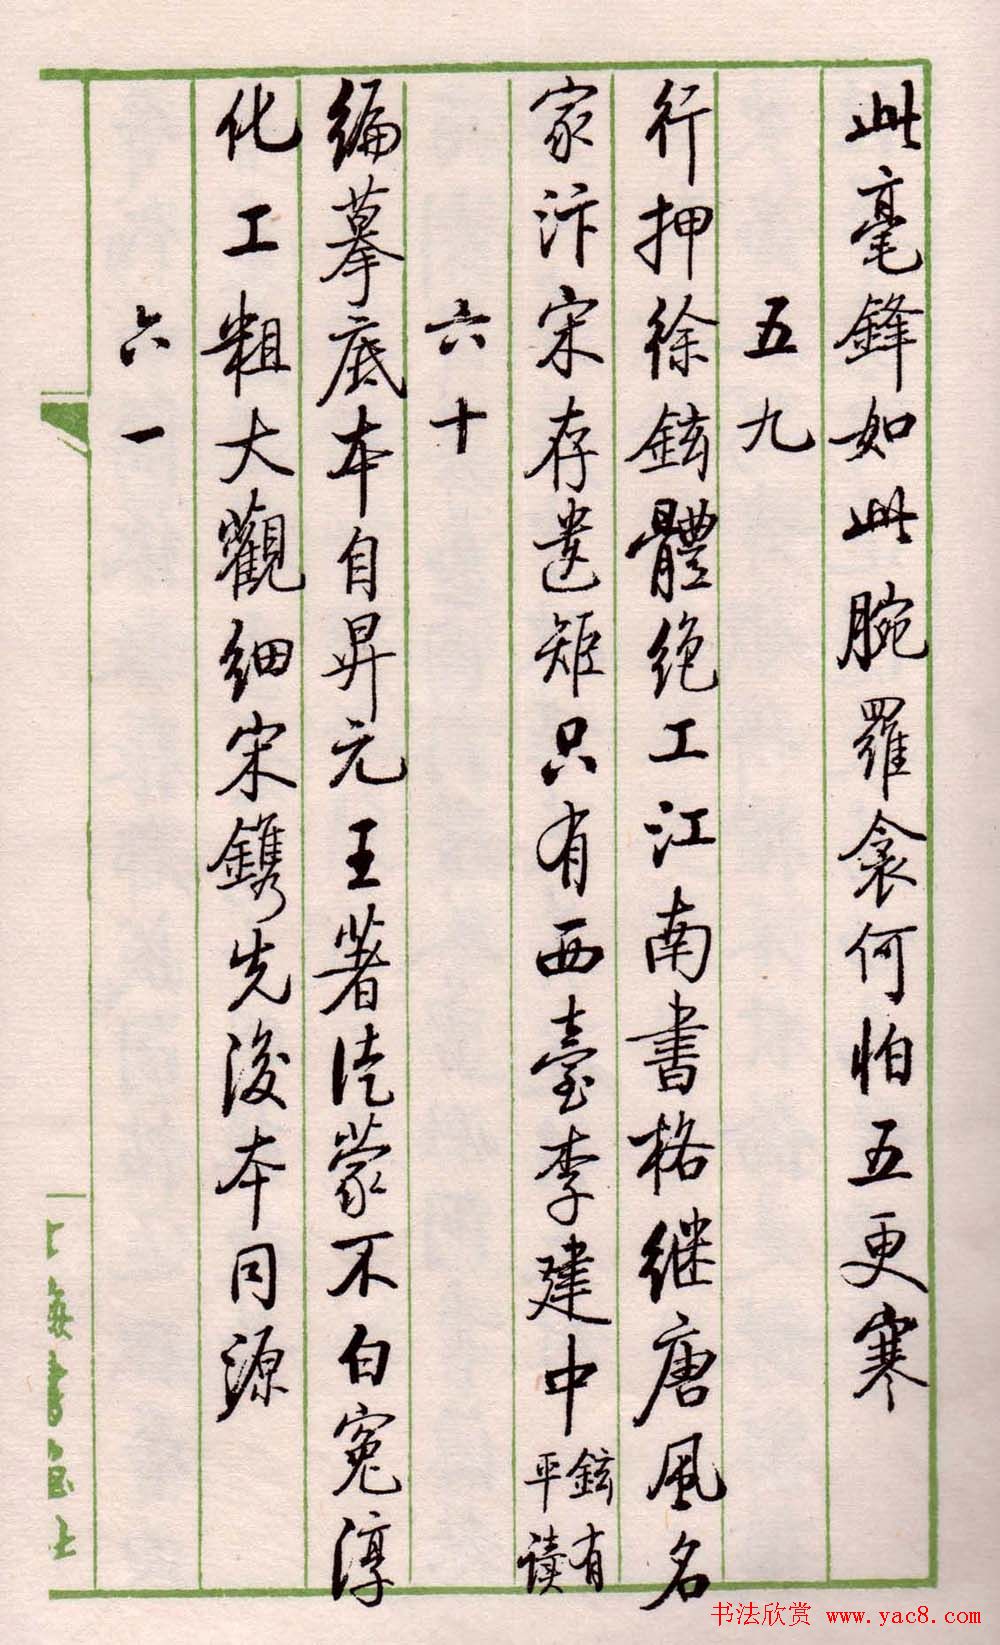 此毫鋒如此腕羅衾何怕五更寒
五九
行押徐鉉體絶工江南書格继唐風名
家汴宋存遺矩只有西臺李建中 鉉有平读
六十
編摹底本自昇元王著徒蒙不白冤淳
化工粗大觀细宋鐫先後本同源
六一
上海書画社
书法欣赏 www.yac8.com